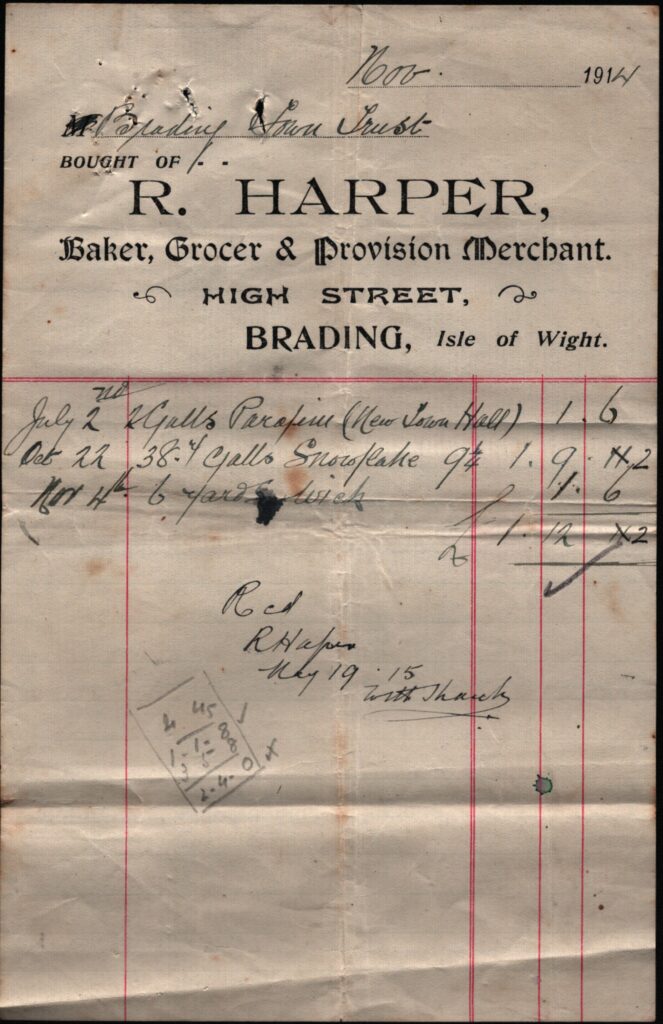 Nov. 1914
Mr Brading Town Trust
BOUGHT OF - -
R. HARPER,
Baker, Grocer & Provision Merchant.
HIGH STREET,
BRADING, Isle of Wight.
July 2nd 2 Galls Parafine (New Town Hall) 1. 6
Oct 22 38. Galls Snowflake 9¼ 1. 9. 2
Nov 4th 6 yards wick 1. 6
£ 1. 12 2
Rcd
R Harper
May 19. 15
With Thanks
45
2.4.